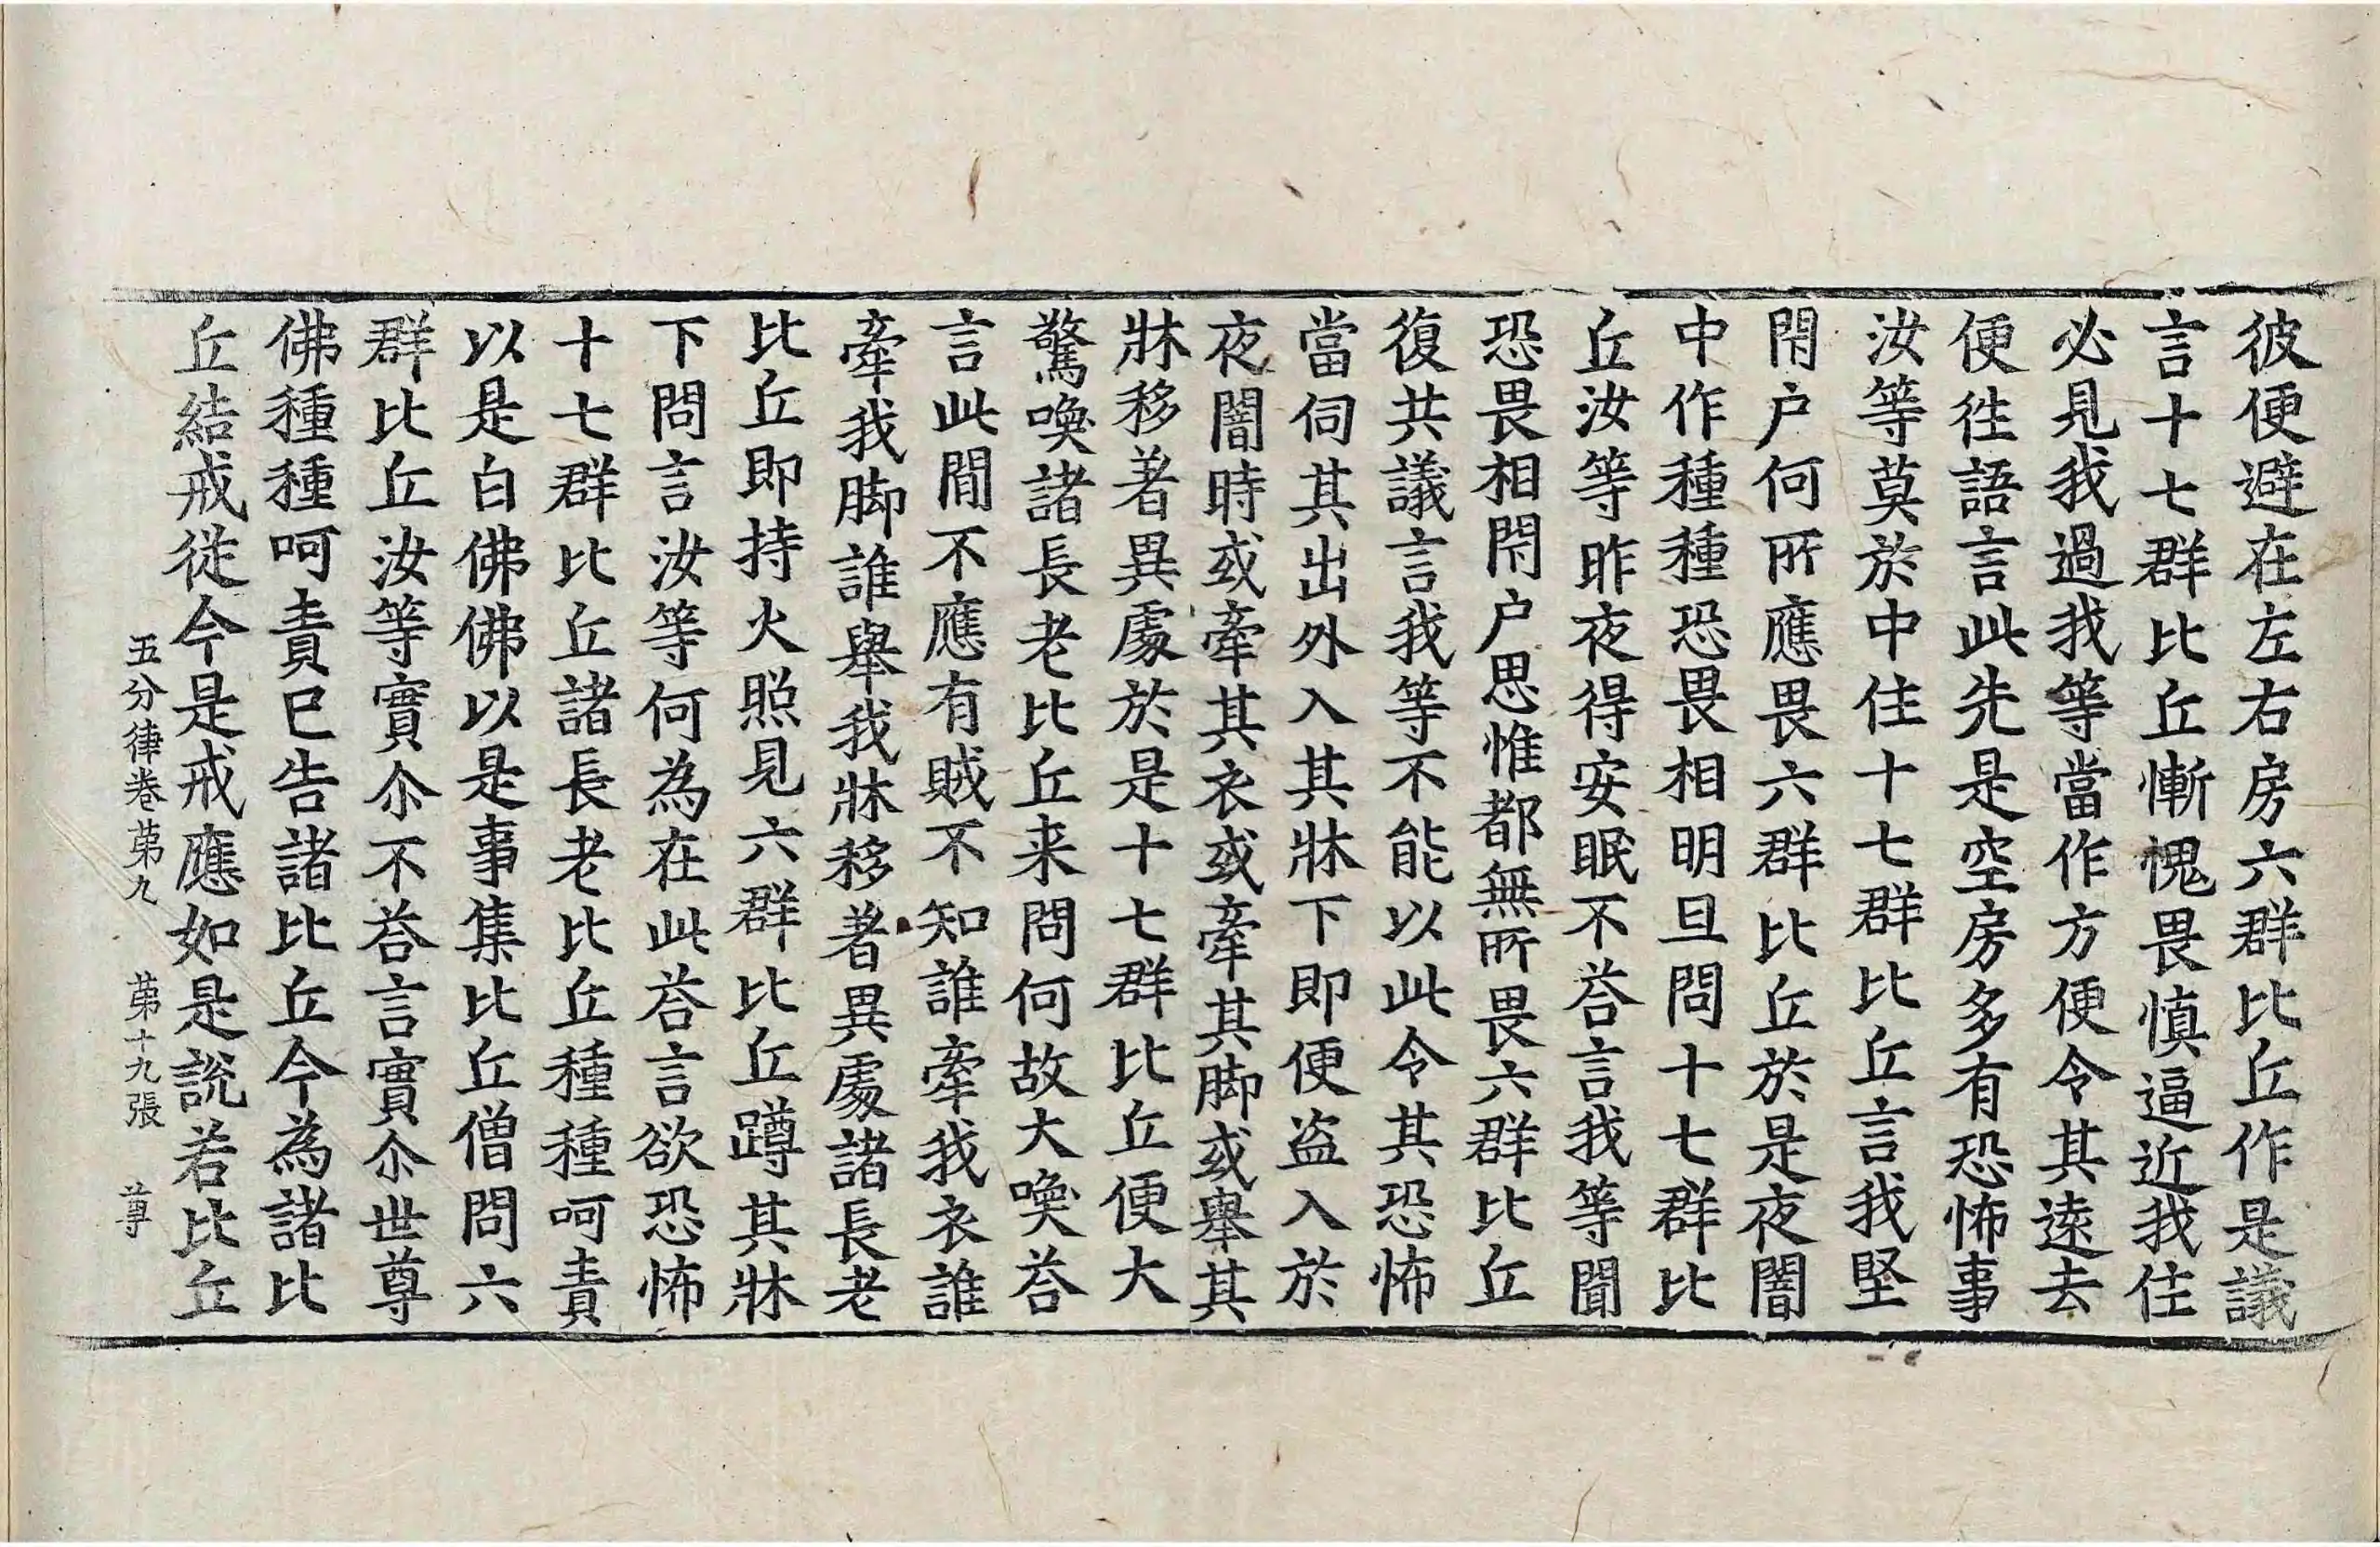 彼便避在左右房六群比丘作是議
言十七群比丘慚愧畏慎逼近我住
必見我過我等當作方便令其遠去
便徃語言此先是空房多有恐怖事
汝等莫於中住十七群比丘言我堅
閇户何所應畏六群比丘於是夜闇
中作種種恐畏相明旦問十七群比
丘汝等昨夜得安眠不荅言我等聞
恐畏相閇户思惟都無所畏六群比丘
復共議言我等不能以此令其恐怖
當伺其出外入其牀下即便盗入於
夜闇時或牽其衣或牽其脚或舉其
牀移著異處於是十七群比丘便大
驚喚諸長老比丘来問何故大喚荅
言此間不應有賊不知誰牽我衣誰
牽我脚誰舉我牀移著異處諸長老
比丘即持火照見六群比丘蹲其牀
下問言汝等何為在此荅言欲恐怖
十七群比丘諸長老比丘種種呵責
以是白佛佛以是事集比丘僧問六
群比丘汝等實尒不荅言實尒世尊
佛種種呵責已告諸比丘今為諸比
丘結戒從今是戒應如是説若比丘
五分律卷苐九 苐十九張 尊